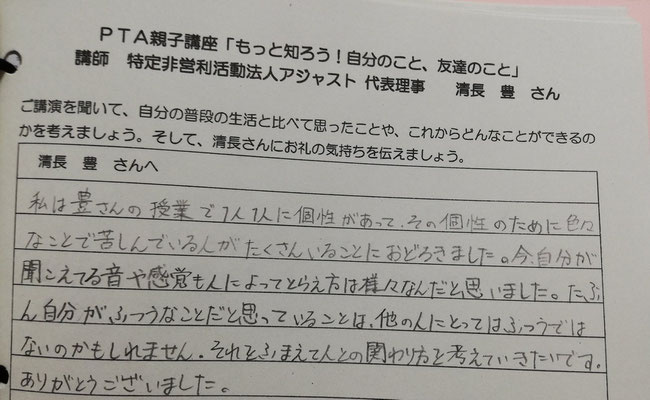 PTA親子講座「もっと知ろう！自分のこと、友達のこと」
講師　特定非営利活動法人アジャスト 代表理事　　清長　豊　さん
ご講演を聞いて、自分の普段の生活と比べて思ったことや、これからどんなことができるの
かを考えましょう。そして、清長さんにお礼の気持ちを伝えましょう。
清長　豊　さんへ
私は豊さんの授業で1人1人に個性があって、その個性のために色々
なことで苦しんでいる人がたくさんいることにおどろきました。今、自分が
聞こえてる音や感覚も人によってとらえ方は様々なんだと思いました。たぶ
ん自分がふつうなことだと思っていることは、他の人にとってはふつうでは
ないのかもしれません。それをふまえて人との関わり方を考えていきたいです。
ありがとうございました。